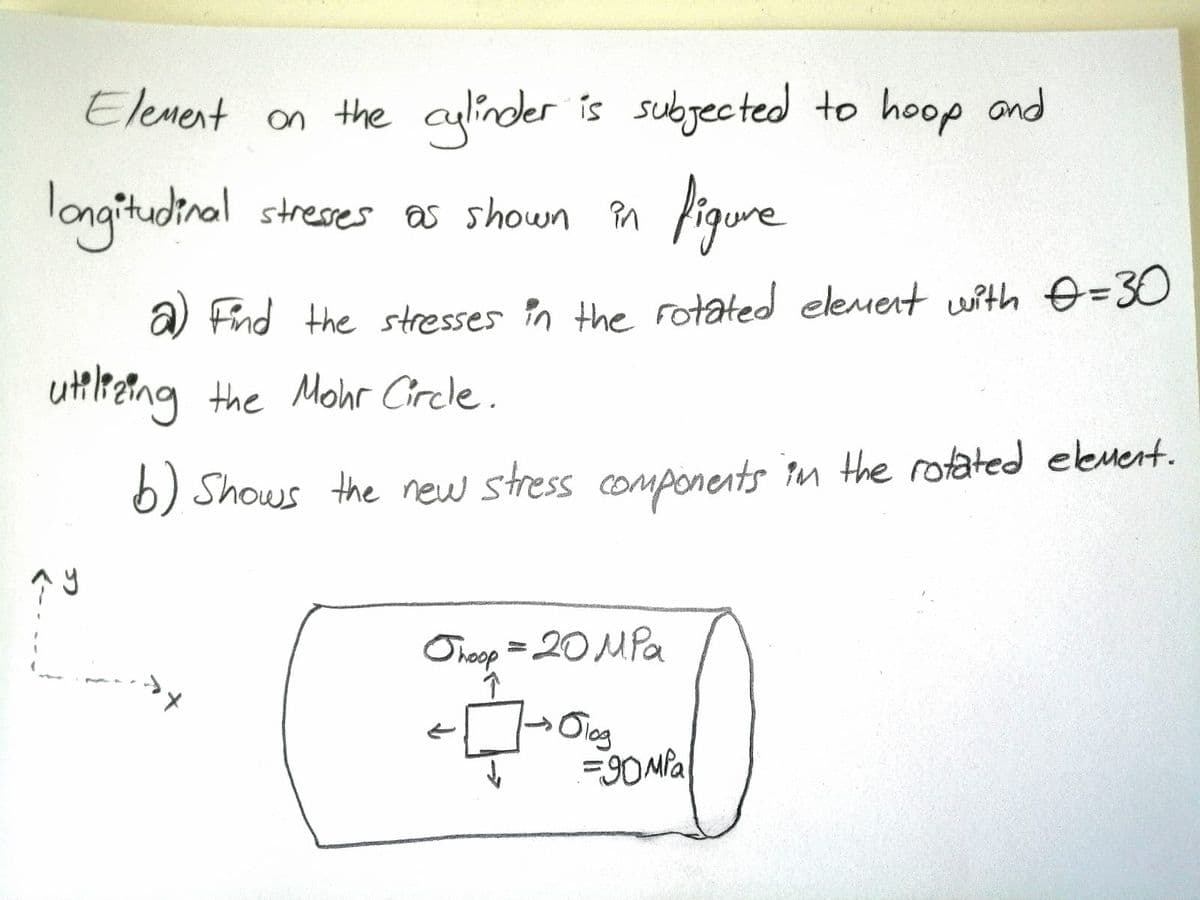 Element on the cylinder is subjected to hoop and
longitudinal stresses as shown in figure
a) Find the stresses in the rotated element with θ=30
utilizing the Mohr Circle.
b) Shows the new stress components in the rotated element.
y
x
σhoop = 20 MPa
σlog
=90 MPa